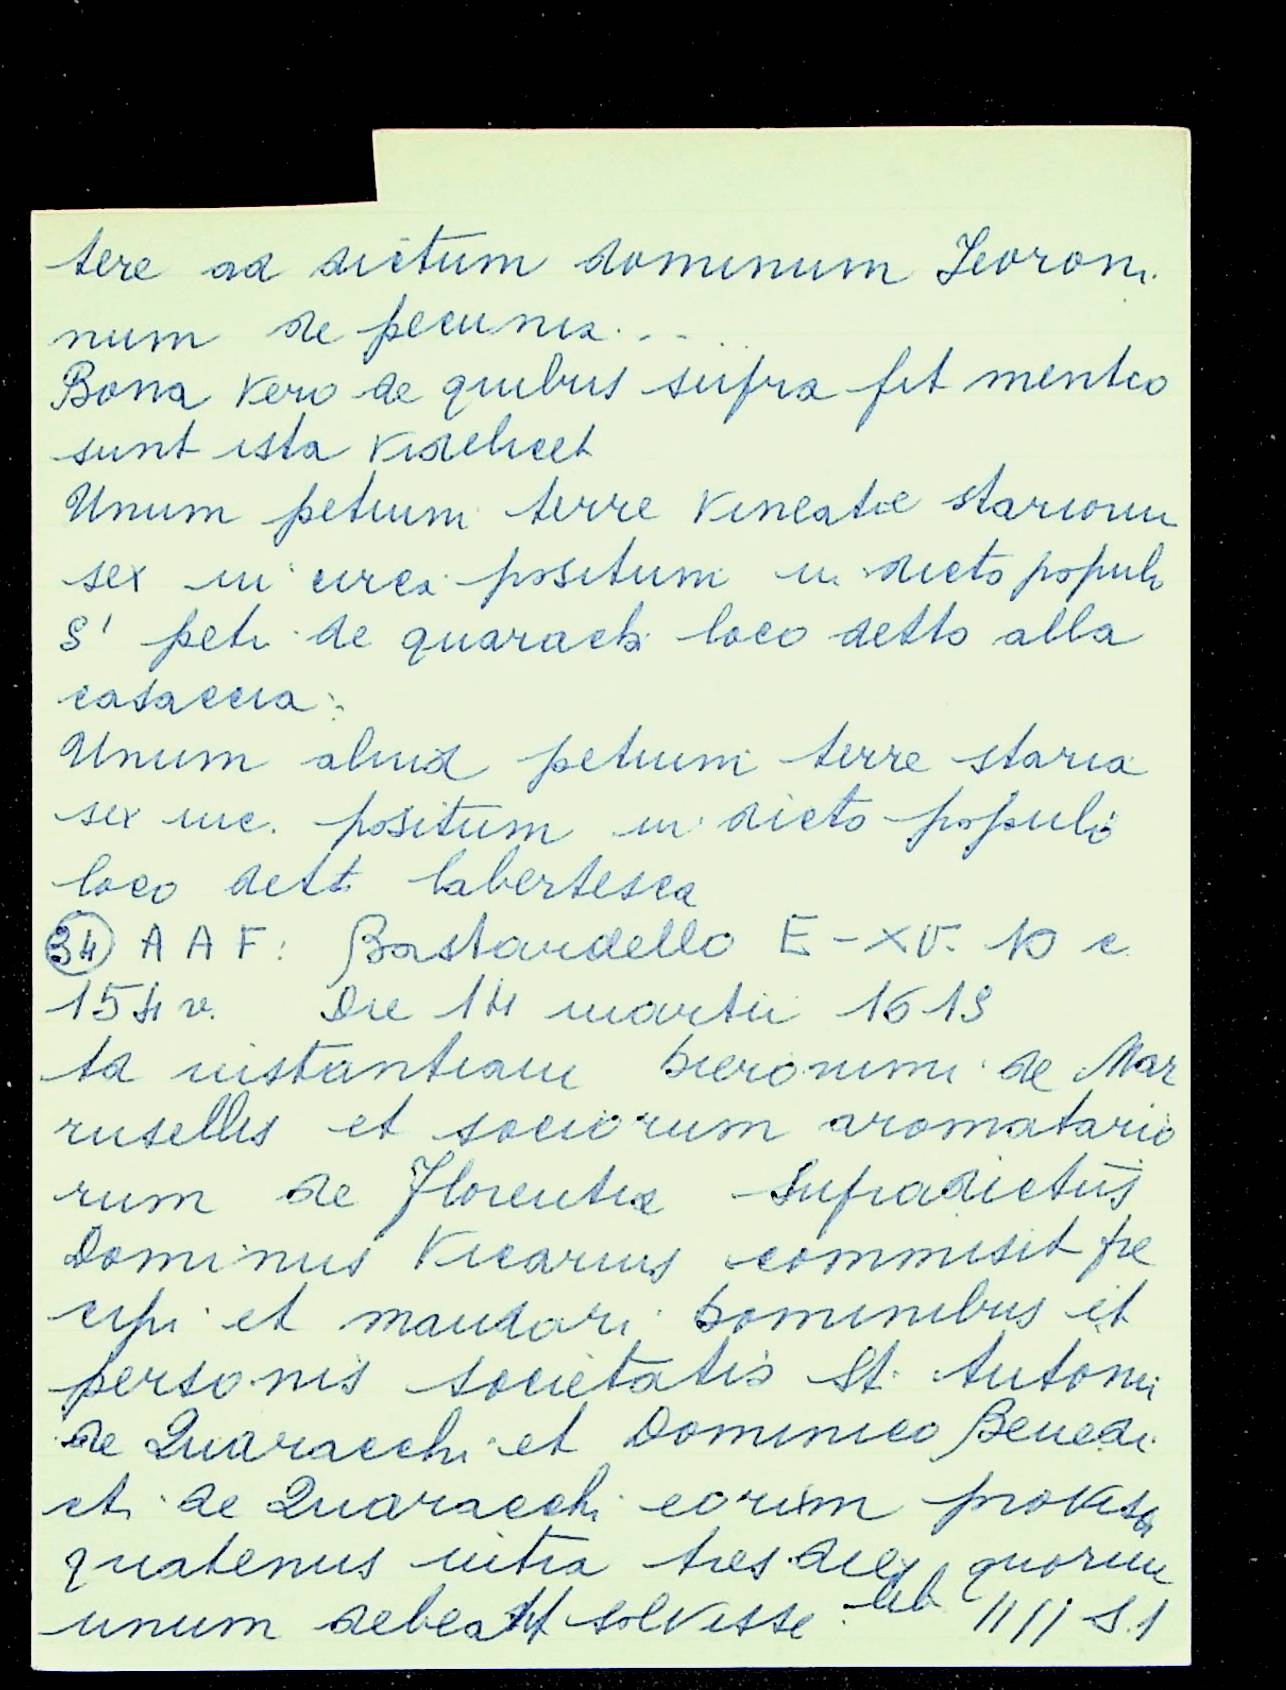 tere ad dictum dominum Jeroni
num de pecunia....
Bona vero de quibus supra fit mentio
sunt ista videlicet
Unum petium terre vineate starioru
sex in circa positum in dicto populo
S' petri de quarachi loco detto alla
casaccia:
Unum aliud petium terre staria
sex inc. positum in dicto populo
loco dett. labertesca
(34) A A F: Bastardello E-XV. 10 c
154 v. Die 14 martii 1613
Ad instantiam hieronimi de Mar
rusellis et sociorum aromatario
rum de Florentia Supradictus
Dominus Vicarius commisit pre
cipi et mandari hominibus et
personis societatis St. Antonii
de Quaracchi et Dominico Benedi
cti de Quaracchi eorum
quatenus intra tres dies quorum
unum debeant solvisse lib. 11// S.1